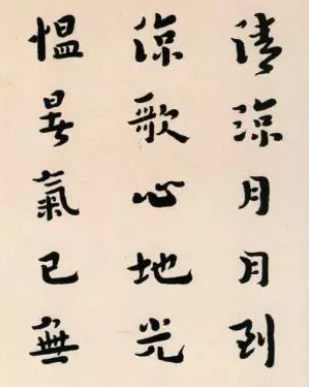 清涼月月到
涼歌心地光
愠暑氣已無